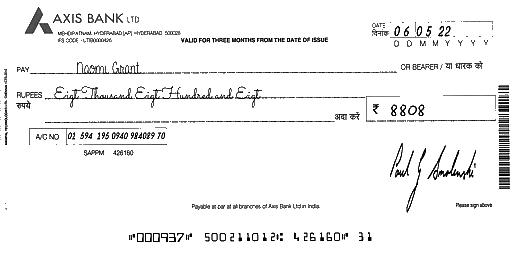 AXIS BANK LTD
MEHDIPATNAM, HYDERABAD [AP] HYDERABAD 500028
IFS CODE - UTIB0000426
VALID FOR THREE MONTHS FROM THE DATE OF ISSUE
DATE
दिनांक 06 05 22
D D M M Y Y Y Y
PAY Naomi Grant OR BEARER / या धारक को
RUPEES Eigt Thousand Eigt Hundred and Eigt
रुपये अदा करें ₹ 8808
A/C NO 01 594 195 0940 984089 70
SAPPM 426160
Paul J Smolenski
Payable at par at all branches of Axis Bank Ltd in India.
Please sign above
"000937" 500211012: 426160" 31